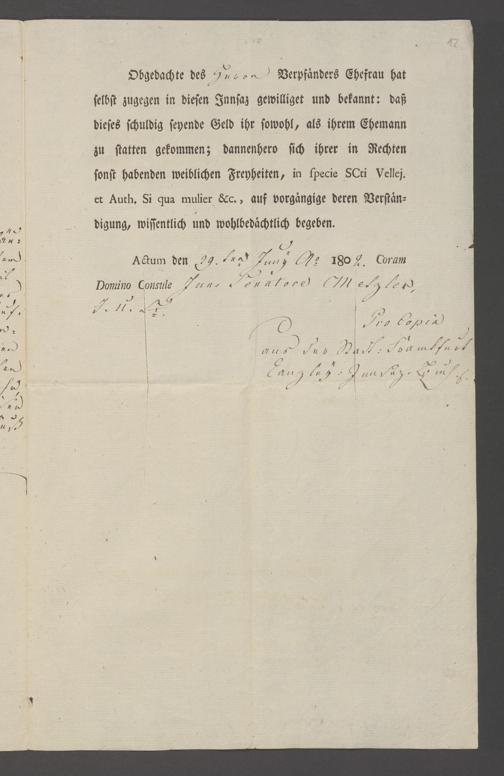 Obgedachte des Herrn Verpfänders Ehefrau hat
selbst zugegen in diesen Innsaz gewilliget und bekannt: daß
dieses schuldig seyende Geld ihr sowohl, als ihrem Ehemann
zu statten gekommen; dannenhero sich ihrer in Rechten
sonst habenden weiblichen Freyheiten, in specie SCti Vellej.
et Auth. Si qua mulier &c., auf vorgängige deren Verstän-
digung, wissentlich und wohlbedächtlich begeben.
Actum den 29. ten Juny Ao 1802. Coram
Domino Consule Jun. Senatore Metzler,
Pro Copia
aus der Stadt-Franckfurt
Canzley-Innsaz-Buch